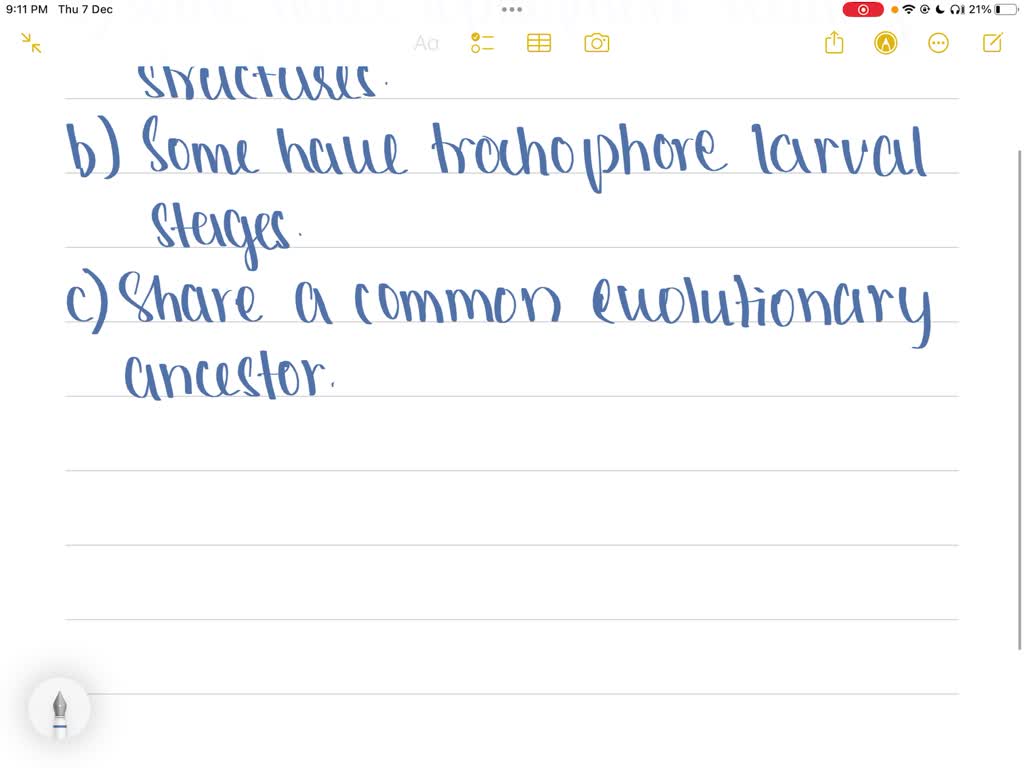 9:11 PM Thu 7 Dec
21%
Aa
structures.
b) Some have trochophore larval
stages.
c) Share a common evolutionary
ancestor.